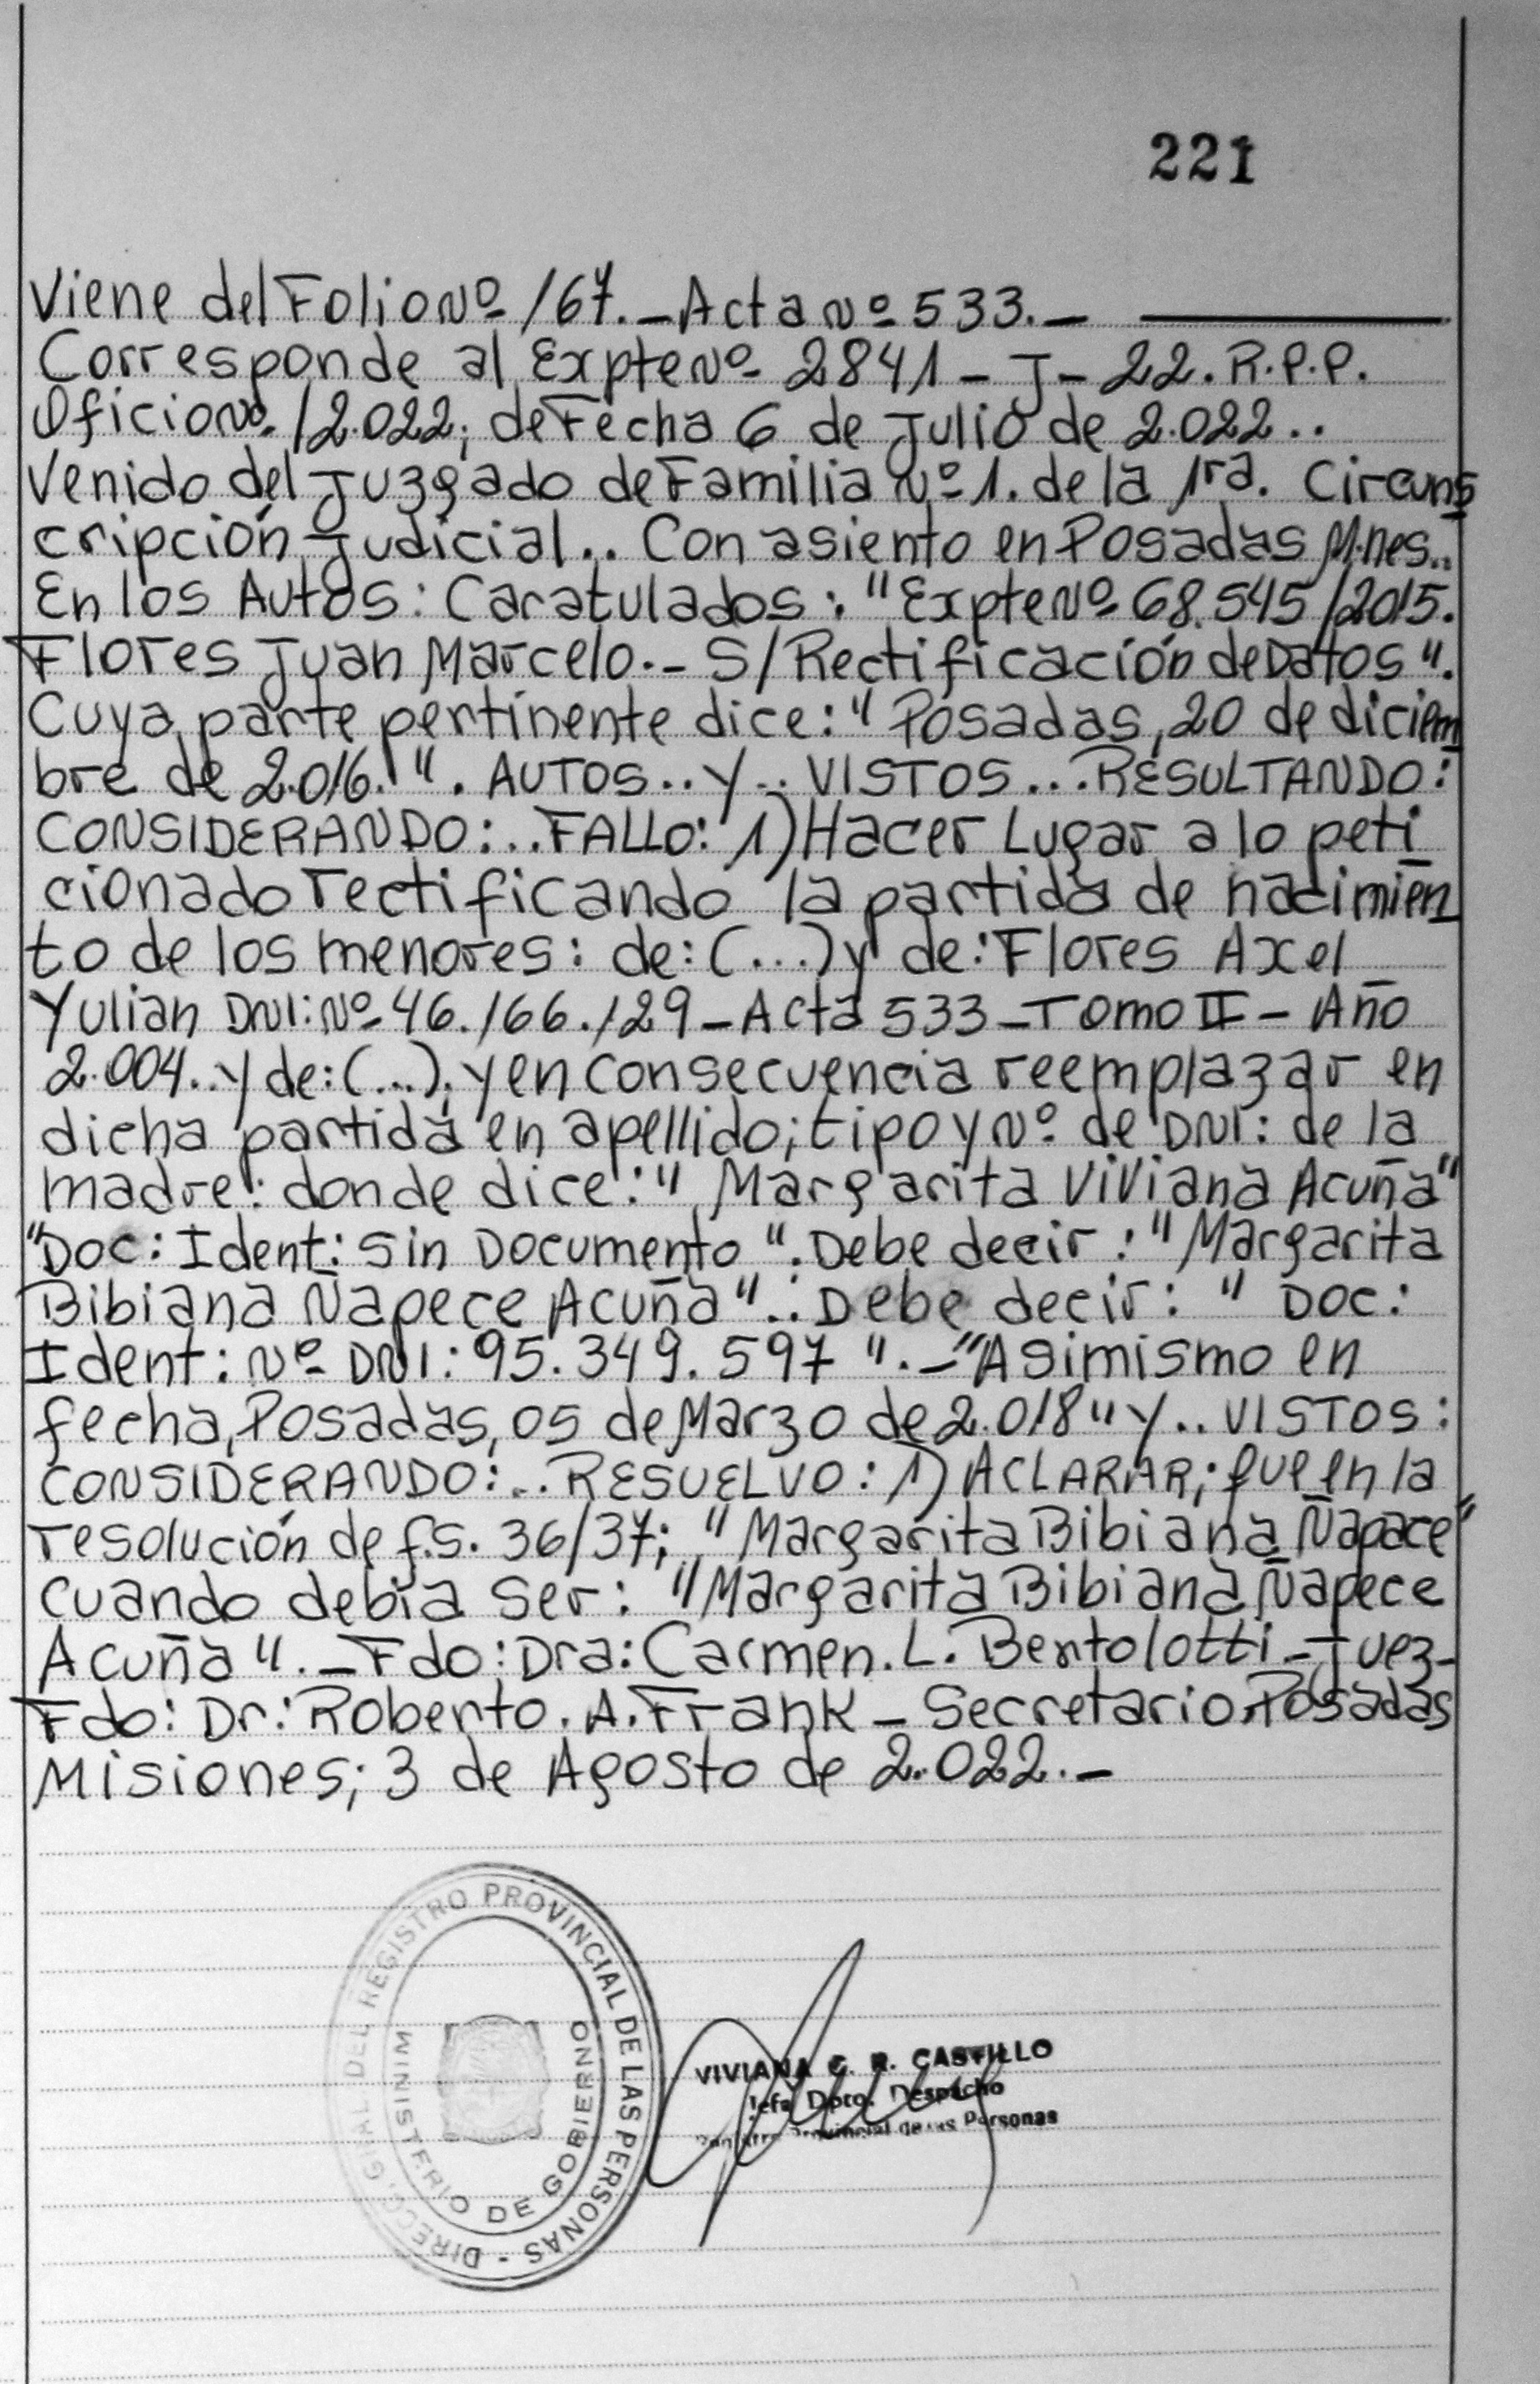 221
Viene del Folio Nº 167.- Acta Nº 533.-
Corresponde al Expte Nº 2841 - J - 22. R.P.P.
Oficio Nº /2.022; de Fecha 6 de Julio de 2.022..
Venido del Juzgado de Familia Nº 1. de la 1ra. Circuns
cripción Judicial.. Con asiento en Posadas M.nes..
En los Autos: Caratulados: "Expte Nº 68.545/2015.
Flores Juan Marcelo.- S/Rectificación de Datos".
Cuya parte pertinente dice: "Posadas, 20 de diciem
bre de 2.016.". AUTOS.. Y.. VISTOS... RESULTANDO:
CONSIDERANDO:.. FALLO: 1) Hacer Lugar a lo peti
cionado rectificando la partida de nacimien
to de los menores: de: (...) y de: Flores Axel
Yulian DNI: Nº 46.166.129 - Acta 533 - Tomo II - Año
2.004.. y de: (...); y en consecuencia reemplazar en
dicha partida en apellido; tipo y Nº de DNI: de la
madre: donde dice: "Margarita Viviana Acuña"
"Doc: Ident: Sin Documento". Debe decir: "Margarita
Bibiana Ñapece Acuña".: Debe decir: "Doc:
Ident: Nº DNI: 95.349.597".- "Asimismo en
fecha, Posadas, 05 de Marzo de 2.018" y.. VISTOS:
CONSIDERANDO:.. RESUELVO: 1) ACLARAR; que en la
resolución de f.s. 36/37; "Margarita Bibiana Ñapace"
cuando debía ser: "Margarita Bibiana Ñapece
Acuña".- Fdo: Dra: Carmen. L. Bentolotti - Juez-
Fdo: Dr: Roberto. A. Frank - Secretario. Posadas
Misiones; 3 de Agosto de 2.022.-
DIRECC. GRAL. DEL REGISTRO PROVINCIAL DE LAS PERSONAS -
MINISTERIO DE GOBIERNO
VIVIANA C. R. CASTILLO
Jefa Dpto. Despacho
Registro Provincial de las Personas